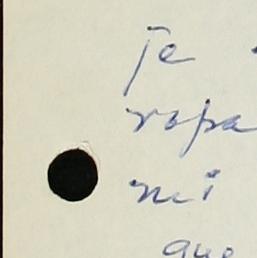 je
ropa
mi
que